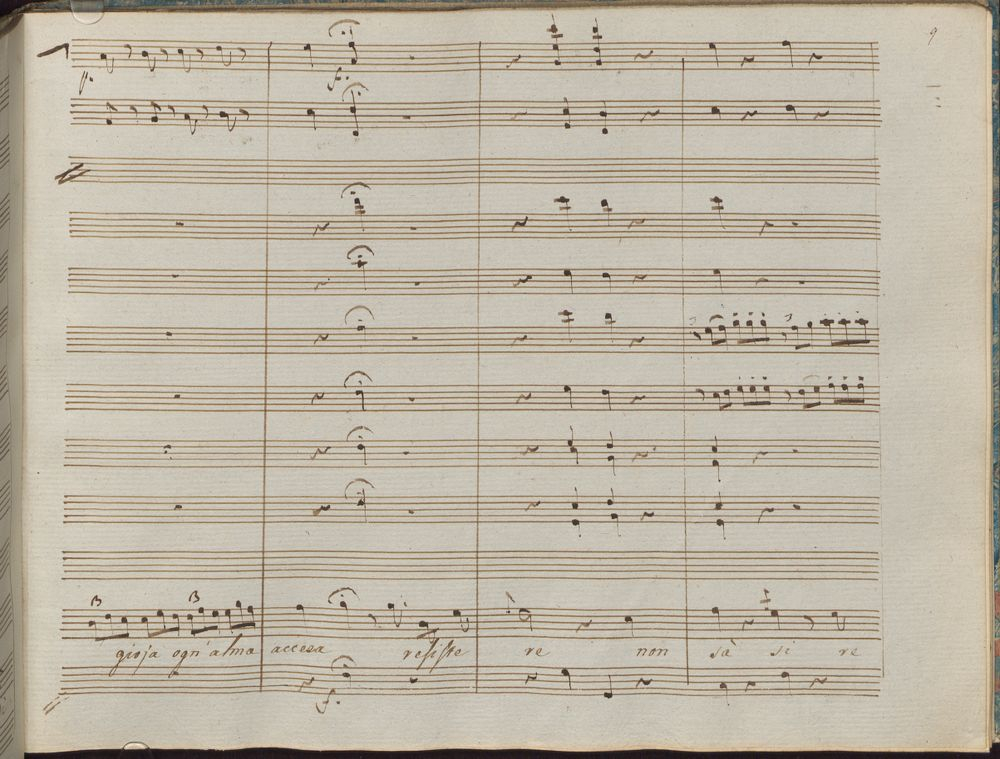 9
p.
f.
3 3
3 3
gioja ogn'alma accesa resiste re non sà si re
f.